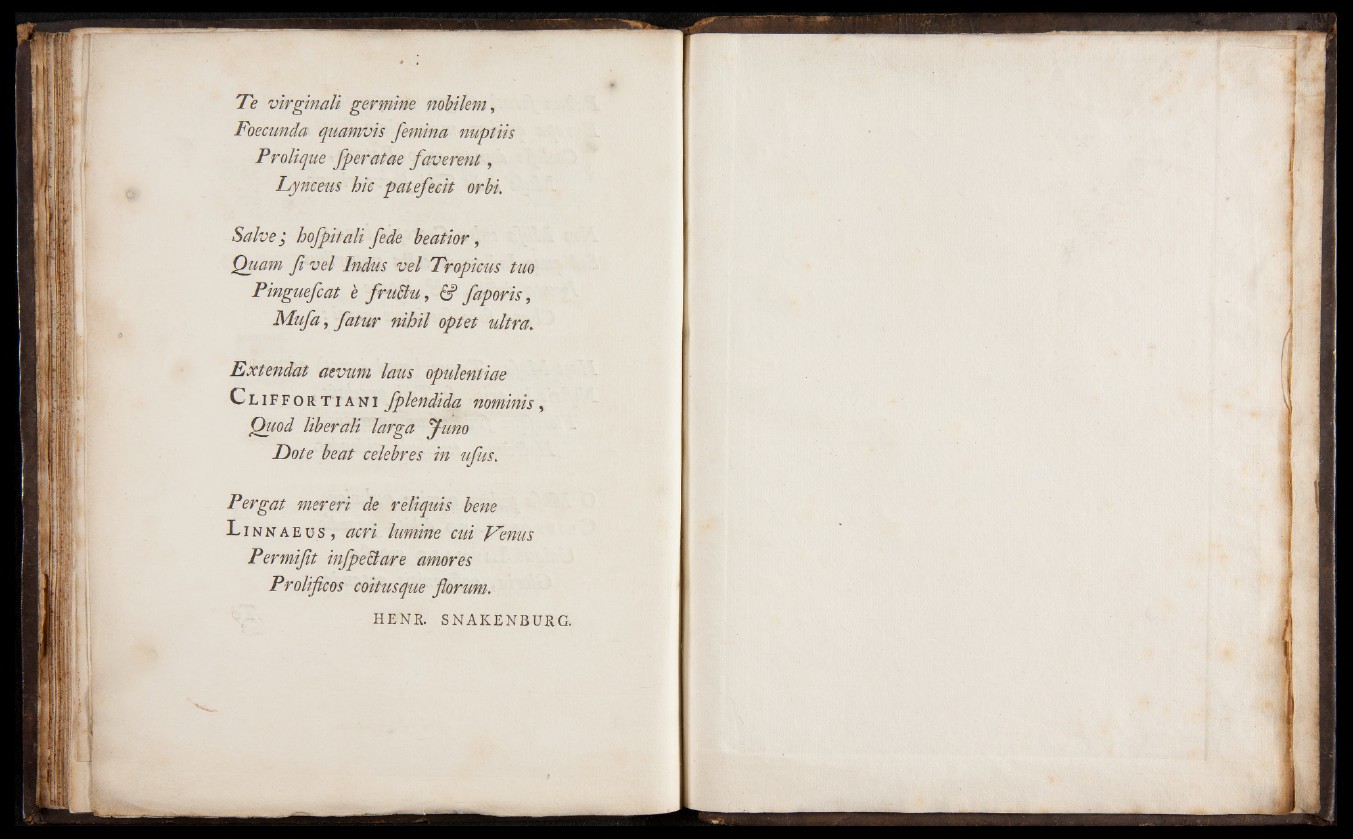 Te virginali germine nobilem,
Foecunda quamvis femina nuptiis
Prolique ſperatae faverent,
Lynceus hic patefecit orbi.
Salve; hoſpitali ſede beatior,
Quam ſi vel Indus vel Tropicus tuo
Pingueſcat è fructu, & ſaporis,
Muſa, ſatur nihil optet ultra.
Extendat aevum laus opulentiae
CLIFFORTIANI ſplendida nominis,
Quod liberali larga Juno
Dote beat celebres in uſus.
Pergat mereri de reliquis bene
LINNAEUS, acri lumine cui Venus
Permiſit inſpectare amores
Prolificos coitusque florum.
HENR. SNAKENBURG.